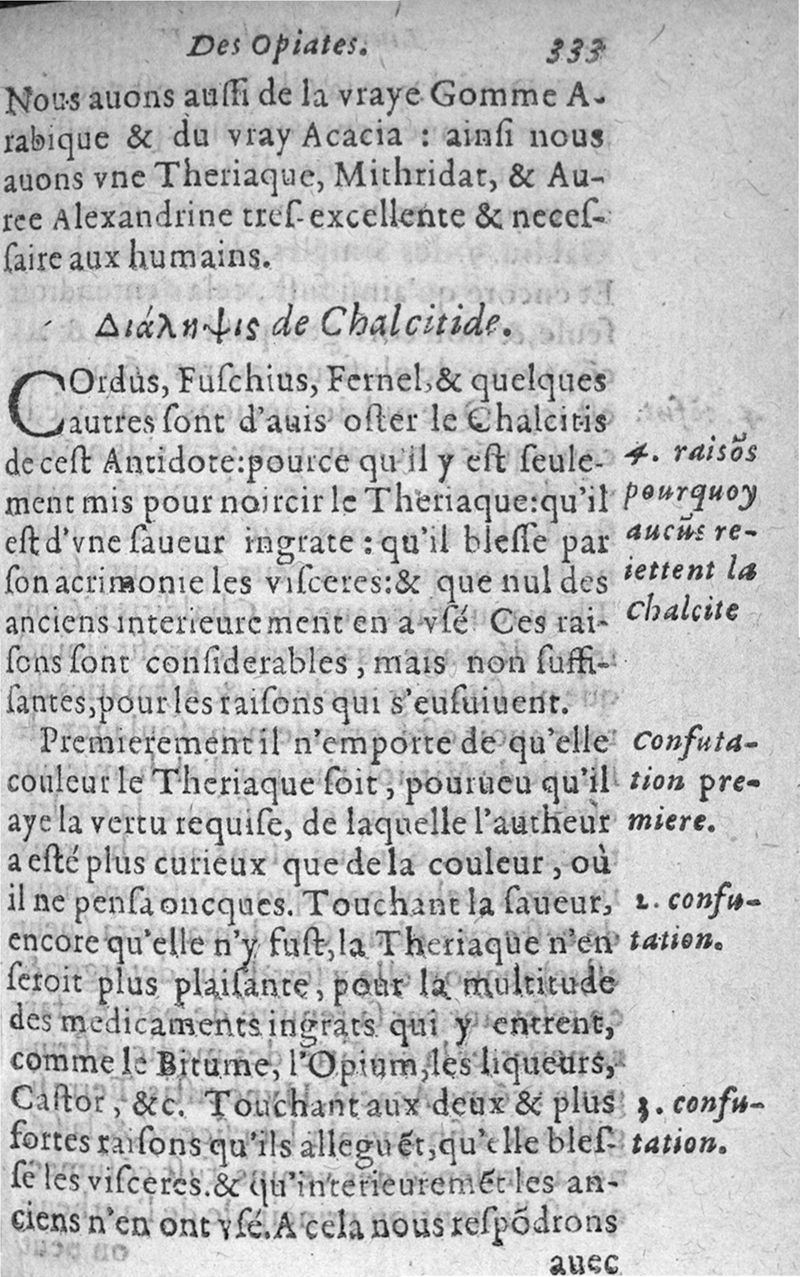 Des Opiates. 333
Nous auons auſſi de la vraye Gomme A-
rabique & du vray Acacia : ainſi nous
auons vne Theriaque, Mithridat, & Au-
ree Alexandrine treſ-excellente & neceſ-
ſaire aux humains.
Διάληψις de Chalcitide.
COrdus, Fuſchius, Fernel, & quelques
autres ſont d'auis oſter le Chalcitis
de ceſt Antidote: pource qu'il y eſt ſeule-
ment mis pour noircir le Theriaque: qu'il
eſt d'vne ſaueur ingrate : qu'il bleſſe par
ſon acrimonie les viſceres: & que nul des
anciens interieurement en a vſé Ces rai-
ſons ſont conſiderables, mais non ſuffi-
ſantes, pour les raiſons qui s'euſuiuent.
4. raisōs
pourquoy
aucūs re-
iettent la
Chalcite
Premierement il n'emporte de qu'elle
couleur le Theriaque ſoit, pourueu qu'il
aye la vertu requiſe, de laquelle l'autheur
a eſté plus curieux que de la couleur, où
il ne penſa oncques. Touchant la ſaueur,
encore qu'elle n'y fuſt, la Theriaque n'en
ſeroit plus plaiſante, pour la multitude
des medicaments ingrats qui y entrent,
comme le Bitume, l'Opium, les liqueurs,
Caſtor, &c. Touchant aux deux & plus
fortes raiſons qu'ils alleguẽt, qu'elle bleſ-
ſe les viſceres. & qu'interieuremẽt les an-
ciens n'en ont vſé. A cela nous reſpõdrons
auec
Confuta-
tion pre-
miere.
2. confu-
tation.
3. confu-
tation.